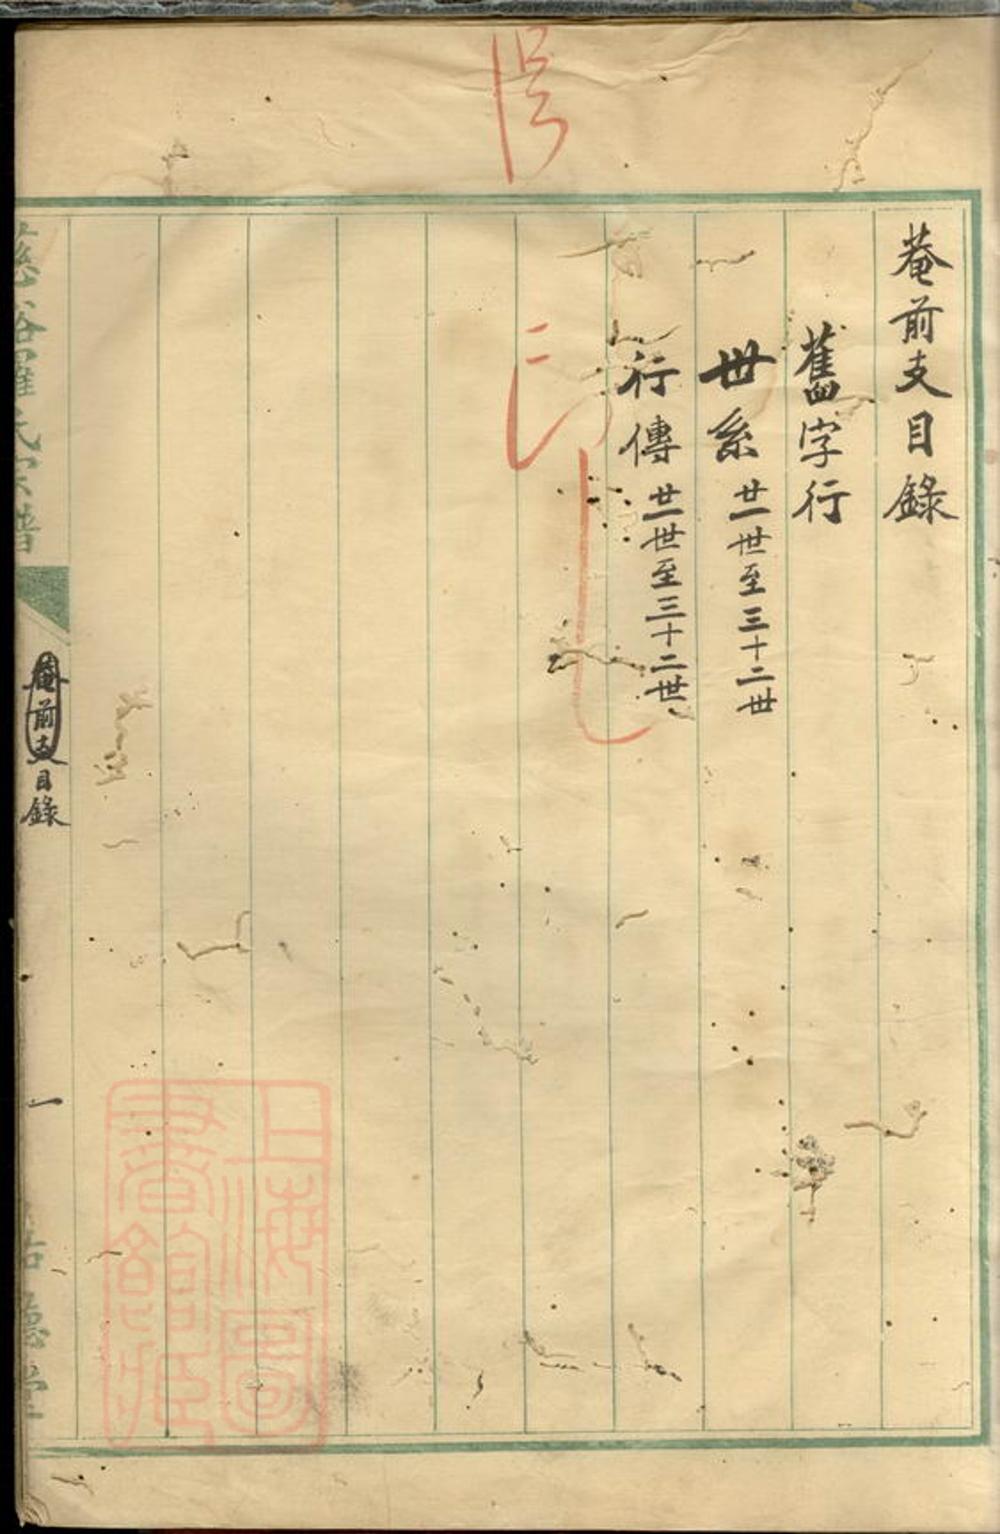 菴前支目錄
舊字行
世系 廿一世至三十二世
行傳 廿一世至三十二世
慈谿羅氏宗譜
菴前支目錄
一
德堂
上海圖書館藏